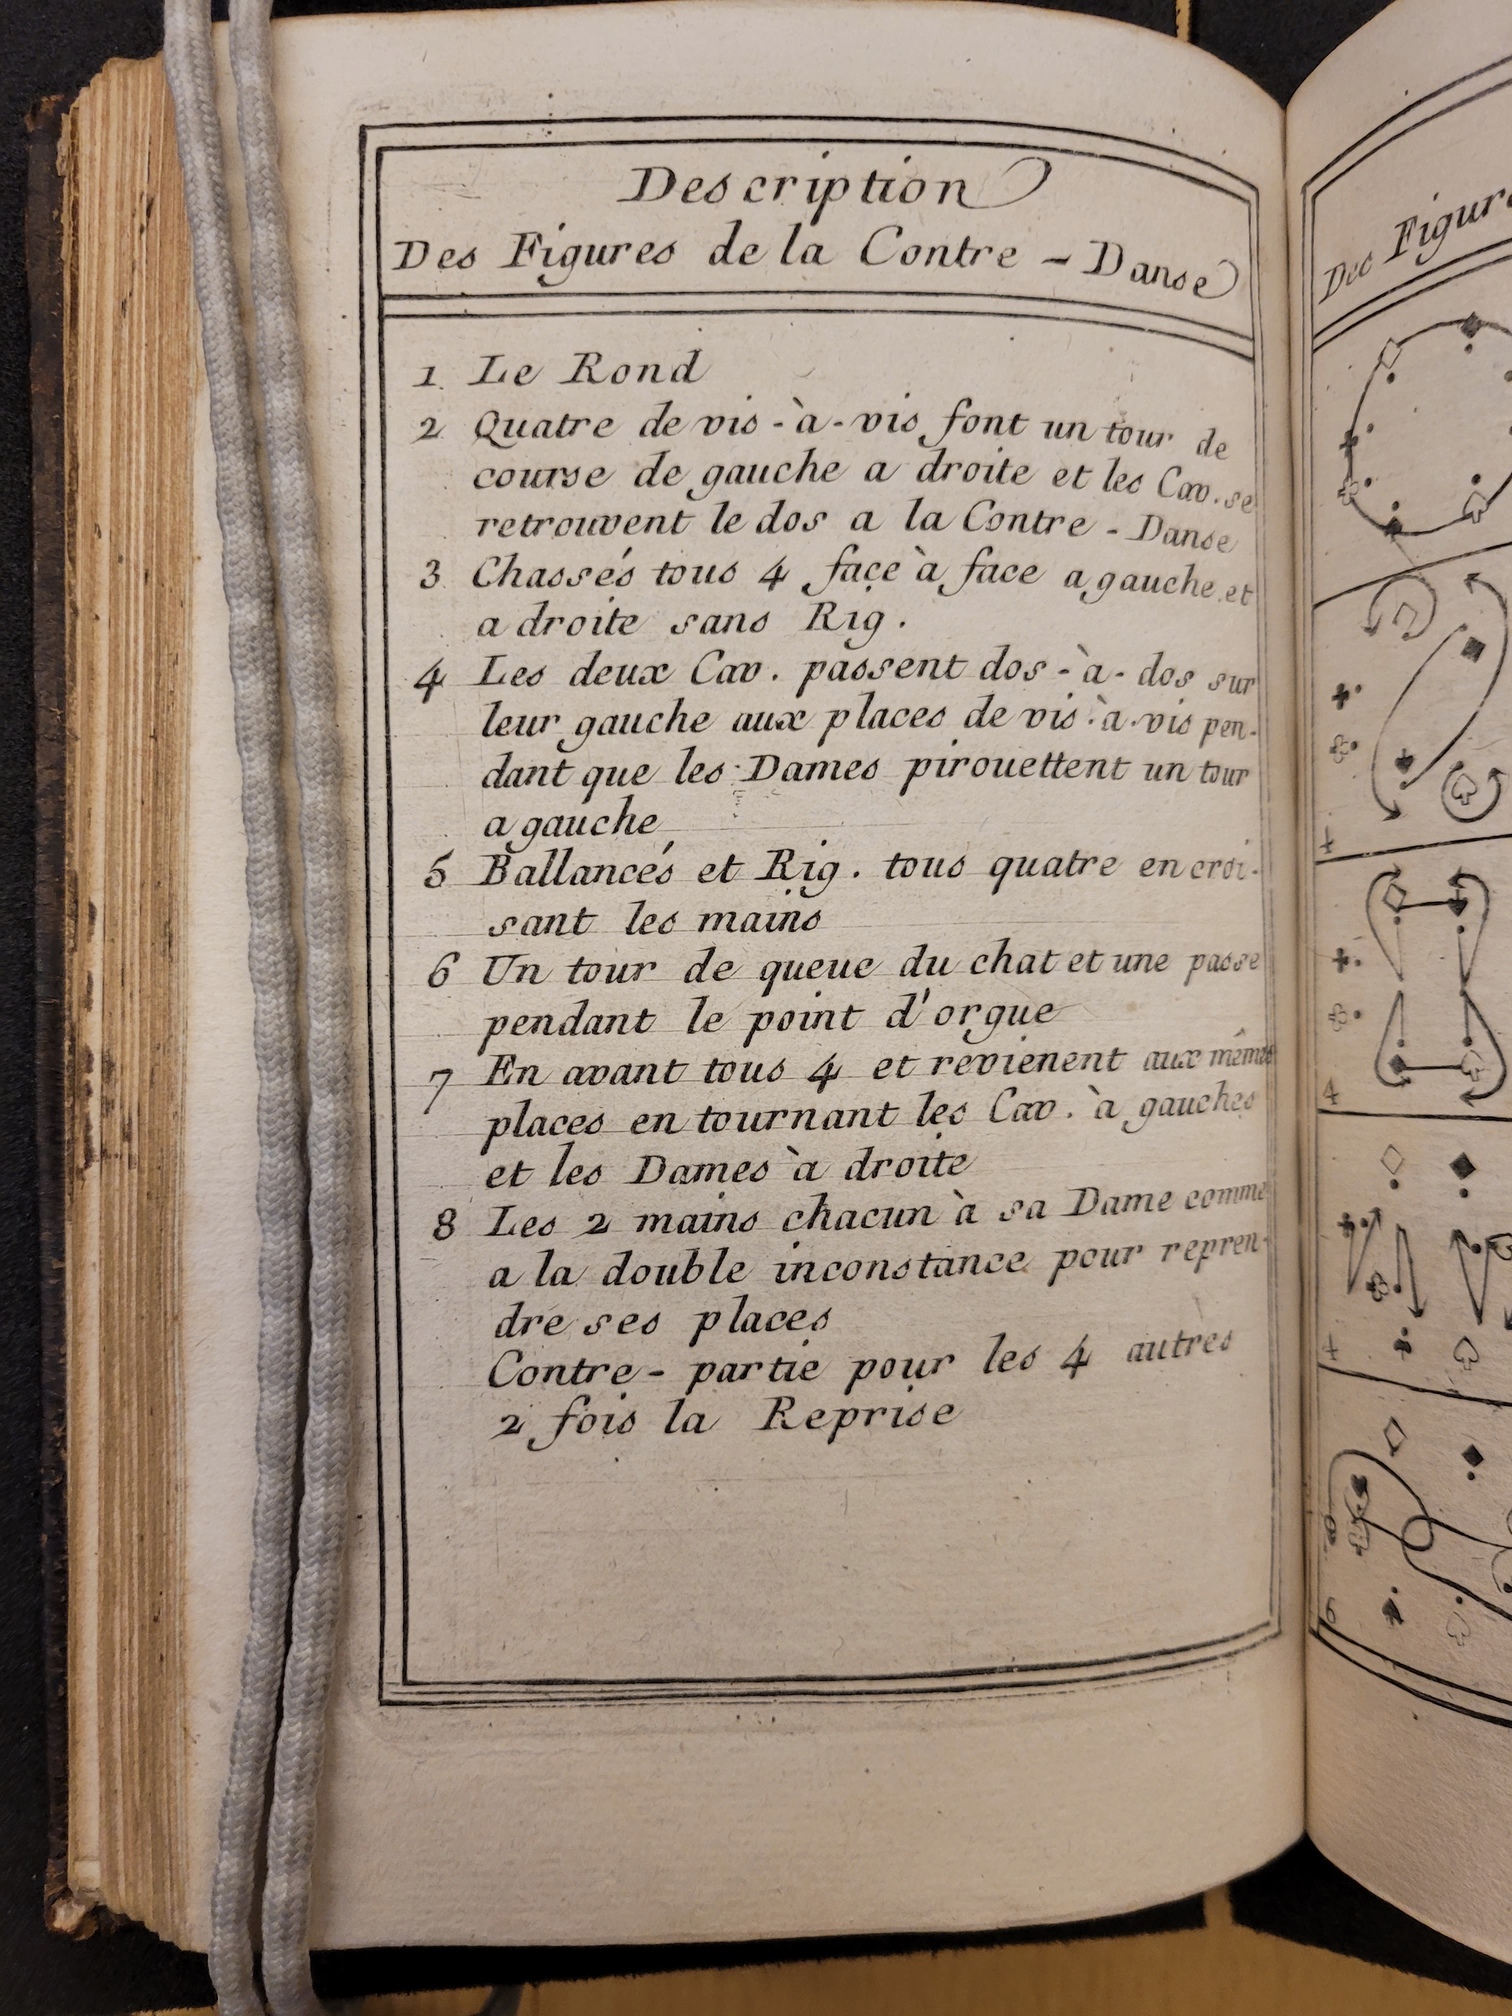 Description
Des Figures de la Contre - Danse
1. Le Rond
2 Quatre de vis-à-vis font un tour de
course de gauche a droite et les Cav. se
retrouvent le dos a la Contre - Danse
3. Chassés tous 4 façe à face a gauche et
a droite sans Rig.
4 Les deux Cav. passent dos-à-dos sur
leur gauche aux places de vis-à-vis pen-
dant que les Dames pirouettent un tour
a gauche
5 Ballancés et Rig. tous quatre en croi-
sant les mains
6 Un tour de queue du chat et une passe
pendant le point d'orgue
7 En avant tous 4 et revienent aux mêmes
places en tournant les Cav. à gauches
et les Dames à droite
8 Les 2 mains chacun à sa Dame comme
a la double inconstance pour repren-
dre ses places
Contre-partie pour les 4 autres
2 fois la Reprise
Des Figur
4
4
4
6